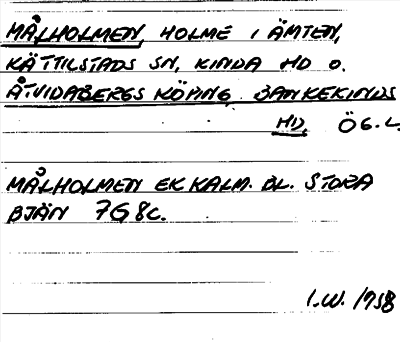 MÅLHOLMEN, HOLME I ÄMTEN,
KÄTTILSTADS SN, KINDA HD O.
ÅTVIDABERGS KÖPING, BANKEKINDS
HD, ÖG.L.
MÅLHOLMEN EK KALM. BL. STORA
BJÄN 7G8c.
I.W. 1958